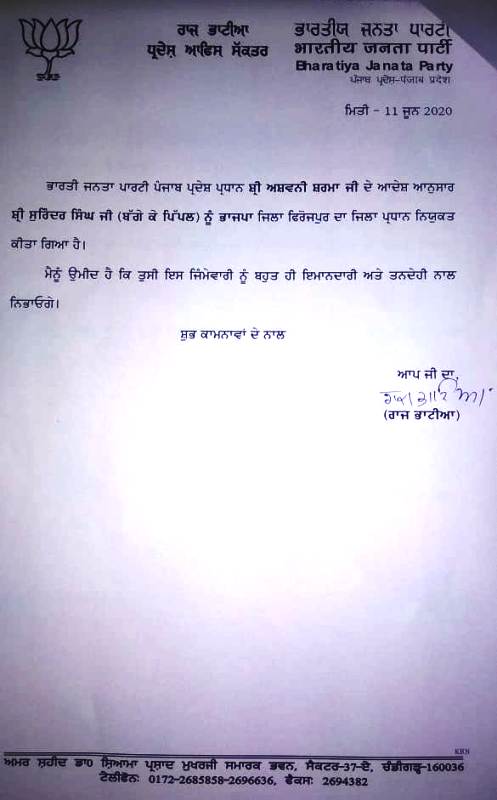 ਰਾਜ ਭਾਟੀਆ
ਪ੍ਰਦੇਸ਼ ਆਫਿਸ ਸੱਕਤਰ
ਭਾਰਤੀਯ ਜਨਤਾ ਪਾਰਟੀ
भारतीय जनता पार्टी
Bharatiya Janata Party
ਪੰਜਾਬ ਪ੍ਰਦੇਸ਼-पंजाब प्रदेश
ਮਿਤੀ - 11 ਜੂਨ 2020
ਭਾਰਤੀ ਜਨਤਾ ਪਾਰਟੀ ਪੰਜਾਬ ਪ੍ਰਦੇਸ਼ ਪ੍ਰਧਾਨ ਸ਼੍ਰੀ ਅਸ਼ਵਨੀ ਸ਼ਰਮਾ ਜੀ ਦੇ ਆਦੇਸ਼ ਆਨੁਸਾਰ
ਸ਼੍ਰੀ ਸੁਰਿੰਦਰ ਸਿੰਘ ਜੀ (ਬੱਗੇ ਕੇ ਪਿੱਪਲ) ਨੂੰ ਭਾਜਪਾ ਜਿਲਾ ਫਿਰੋਜਪੁਰ ਦਾ ਜਿਲਾ ਪ੍ਰਧਾਨ ਨਿਯੁਕਤ
ਕੀਤਾ ਗਿਆ ਹੈ।
ਮੈਨੂੰ ਉਮੀਦ ਹੈ ਕਿ ਤੁਸੀ ਇਸ ਜਿੰਮੇਵਾਰੀ ਨੂੰ ਬਹੁਤ ਹੀ ਇਮਾਨਦਾਰੀ ਅਤੇ ਤਨਦੇਹੀ ਨਾਲ
ਨਿਭਾਓਗੇ।
ਸ਼ੁਭ ਕਾਮਨਾਵਾਂ ਦੇ ਨਾਲ
ਆਪ ਜੀ ਦਾ,
ਰਾਜ ਭਾਟਿਆ
(ਰਾਜ ਭਾਟੀਆ)
KBN
ਅਮਰ ਸ਼ਹੀਦ ਡਾ0 ਸ਼ਿਆਮਾ ਪ੍ਰਸ਼ਾਦ ਮੁਖਰਜੀ ਸਮਾਰਕ ਭਵਨ, ਸੈਕਟਰ-37-ਏ, ਚੰਡੀਗੜ੍ਹ-160036
ਟੈਲੀਫੋਨ: 0172-2685858-2696636, ਫੈਕਸ: 2694382